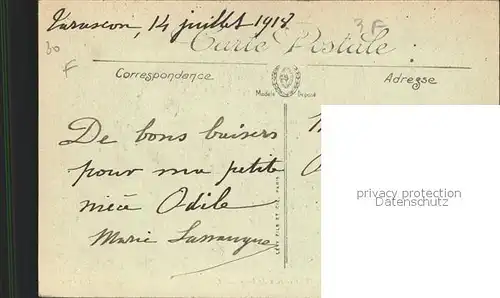 Tarascon, 14 juillet 1918
3F
30
Carte Postale
F
Correspondance
Adresse
Modèle Déposé
De bons baisers
pour ma petite
nièce Odile
Marie
LEVY FILS ET CIE, PARIS
privacy protection
Datenschutz